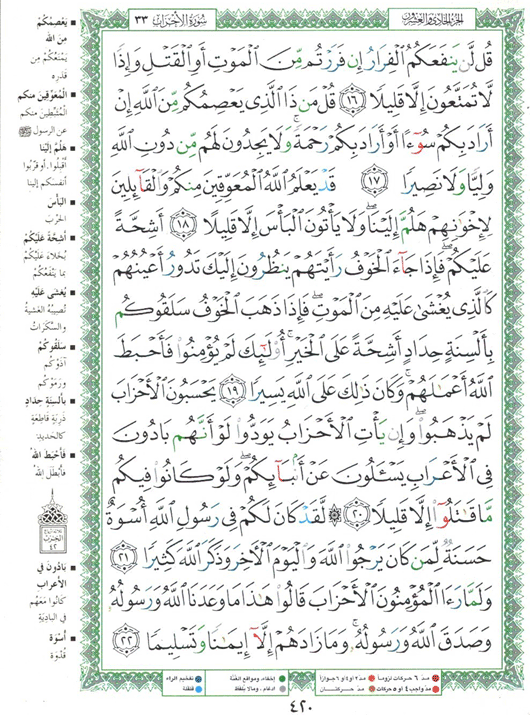 الجزء الحادي والعشرون
سُورَةُ الأَحْزَابِ ٣٣
قُل لَّن يَنفَعَكُمُ ٱلْفِرَارُ إِن فَرَرْتُم مِّنَ ٱلْمَوْتِ أَوِ ٱلْقَتْلِ وَإِذًا
لَّا تُمَتَّعُونَ إِلَّا قَلِيلًا ١٦ قُلْ مَن ذَا ٱلَّذِى يَعْصِمُكُم مِّنَ ٱللَّهِ إِنْ
أَرَادَ بِكُمْ سُوٓءًا أَوْ أَرَادَ بِكُمْ رَحْمَةً ۚ وَلَا يَجِدُونَ لَهُم مِّن دُونِ ٱللَّهِ
وَلِيًّا وَلَا نَصِيرًا ١٧ قَدْ يَعْلَمُ ٱللَّهُ ٱلْمُعَوِّقِينَ مِنكُمْ وَٱلْقَآئِلِينَ
لِإِخْوَٰنِهِمْ هَلُمَّ إِلَيْنَا ۖ وَلَا يَأْتُونَ ٱلْبَأْسَ إِلَّا قَلِيلًا ١٨ أَشِحَّةً
عَلَيْكُمْ ۖ فَإِذَا جَآءَ ٱلْخَوْفُ رَأَيْتَهُمْ يَنظُرُونَ إِلَيْكَ تَدُورُ أَعْيُنُهُمْ
كَٱلَّذِى يُغْشَىٰ عَلَيْهِ مِنَ ٱلْمَوْتِ ۖ فَإِذَا ذَهَبَ ٱلْخَوْفُ سَلَقُوكُم
بِأَلْسِنَةٍ حِدَادٍ أَشِحَّةً عَلَى ٱلْخَيْرِ ۚ أُو۟لَٰٓئِكَ لَمْ يُؤْمِنُوا۟ فَأَحْبَطَ
ٱللَّهُ أَعْمَٰلَهُمْ ۚ وَكَانَ ذَٰلِكَ عَلَى ٱللَّهِ يَسِيرًا ١٩ يَحْسَبُونَ ٱلْأَحْزَابَ
لَمْ يَذْهَبُوا۟ ۖ وَإِن يَأْتِ ٱلْأَحْزَابُ يَوَدُّوا۟ لَوْ أَنَّهُم بَادُونَ
فِى ٱلْأَعْرَابِ يَسْـَٔلُونَ عَنْ أَنۢبَآئِكُمْ ۖ وَلَوْ كَانُوا۟ فِيكُم
مَّا قَٰتَلُوٓا۟ إِلَّا قَلِيلًا ٢٠ ۞ لَّقَدْ كَانَ لَكُمْ فِى رَسُولِ ٱللَّهِ أُسْوَةٌ
حَسَنَةٌ لِّمَن كَانَ يَرْجُوا۟ ٱللَّهَ وَٱلْيَوْمَ ٱلْءَاخِرَ وَذَكَرَ ٱللَّهَ كَثِيرًا ٢١
وَلَمَّا رَءَا ٱلْمُؤْمِنُونَ ٱلْأَحْزَابَ قَالُوا۟ هَٰذَا مَا وَعَدَنَا ٱللَّهُ وَرَسُولُهُۥ
وَصَدَقَ ٱللَّهُ وَرَسُولُهُۥ ۚ وَمَا زَادَهُمْ إِلَّآ إِيمَٰنًا وَتَسْلِيمًا ٢٢
يَعْصِمُكُمْ
مِنَ الله
يَمْنَعُكُمْ مِنْ
قَدَرِهِ
المُعَوِّقِينَ مِنكم
المُثَبِّطِينَ منكم
عن الرسول ﷺ
هَلُمَّ إِلَيْنَا
أَقْبِلُوا، أو قَرِّبُوا
أنفسكم إلينا
البَأْسَ
الحَرْبَ
أَشِحَّةً عَلَيْكُمْ
بُخَلاءَ عَلَيْكُمْ
بما يَنْفَعُكُمْ
يُغْشَى عَلَيْهِ
تُصِيبُهُ الغَشْيَةُ
والسَّكَرَاتُ
سَلَقُوكُمْ
آذَوْكُمْ
وَرَمَوْكُمْ
بِأَلْسِنَةٍ حِدَادٍ
ذَرِبَةٍ قَاطِعَةٍ
كالحَدِيدِ
فَأَحْبَطَ الله
فَأَبْطَلَ اللهُ
الحزب
٤٢
بَادُونَ في
الأعراب
كانُوا مَعَهُم
في البادِيَةِ
أُسْوَةٌ
قُدْوَةٌ
مدّ ٦ حركات لزوماً مدّ ٢ أو ٤ أو ٦ جوازاً إخفاء، ومواقع الغُنَّة تفخيم الراء
مدّ واجب ٤ أو ٥ حركات مدّ حركتان ادغام، ومالا يلفظ قلقلة
٤٢٠